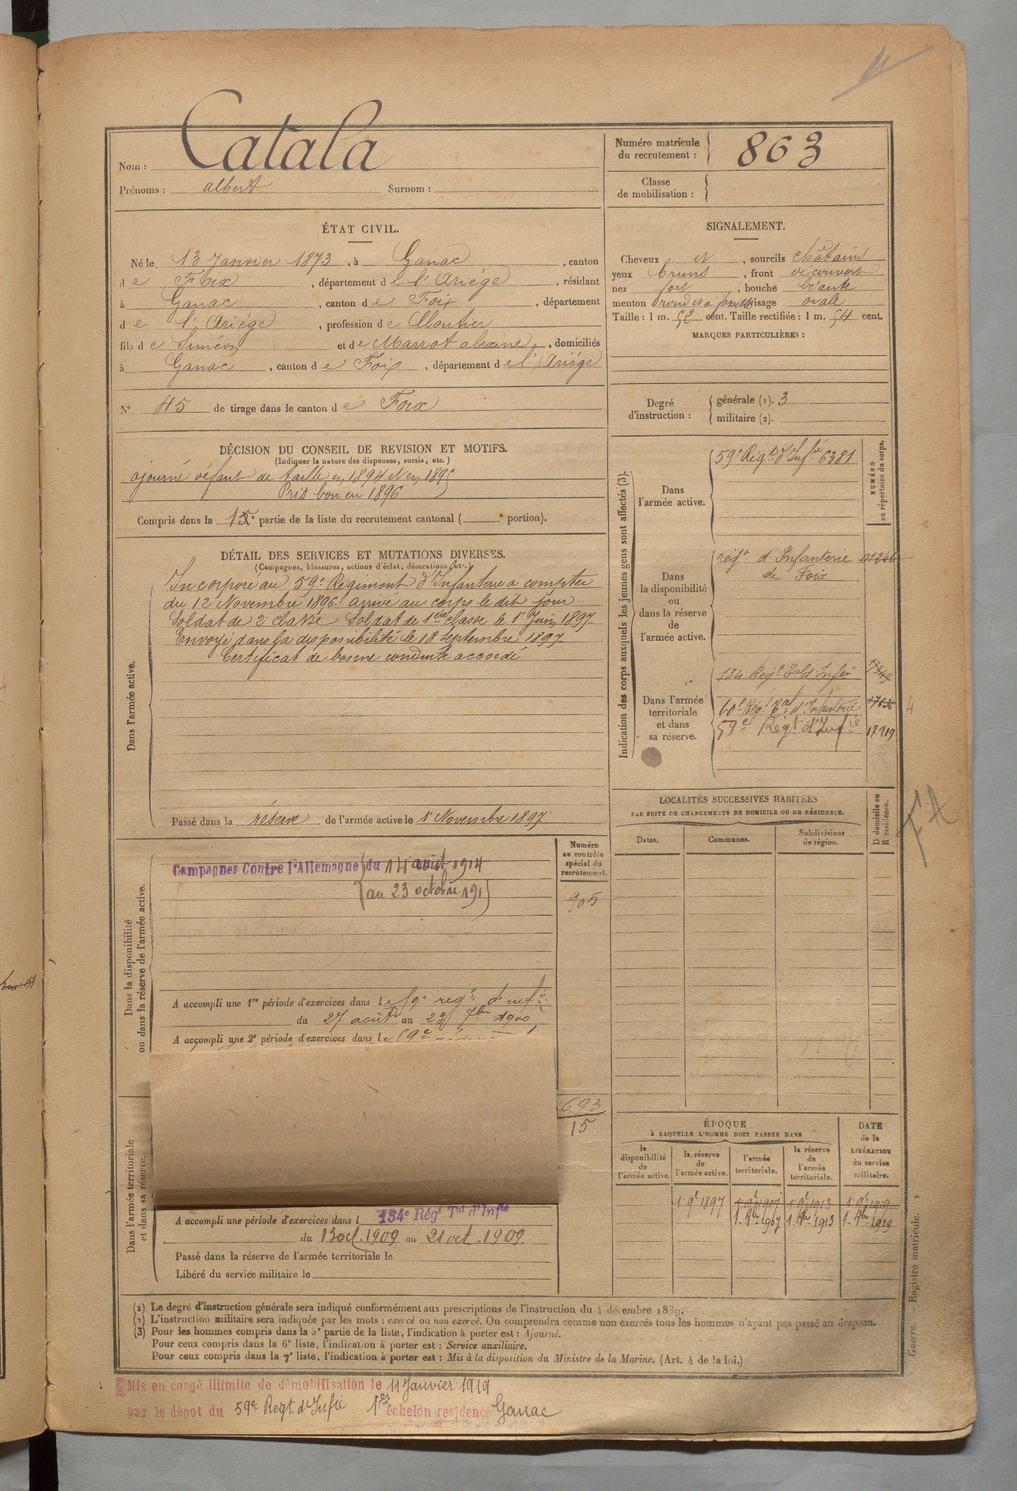 Nom : Catala
Prénoms : albert Surnom :
Numéro matricule du recrutement : 863
Classe de mobilisation :
ÉTAT CIVIL.
Né le 13 Janvier 1873, à Ganac, canton
de Foix, département de l'Ariége, résidant
à Ganac, canton de Foix, département
de l'Ariége, profession de
fils de Siméon et de Marrot, domiciliés
à Ganac, canton de Foix, département de l'Ariége
N° 45 de tirage dans le canton de Foix
SIGNALEMENT.
Cheveux et, sourcils châtains
yeux bruns, front découvert
nez fort, bouche
menton rond visage ovale
Taille : 1 m. 52 cent. Taille rectifiée : 1 m. 54 cent.
MARQUES PARTICULIÈRES :
Degré d'instruction : générale (1). 3
militaire (2).
DÉCISION DU CONSEIL DE REVISION ET MOTIFS.
(Indiquer la nature des dispenses, sursis, etc.)
ajourné défaut de taille en 1894 et en 1895
Pris bon en 1896
Compris dans la partie de la liste du recrutement cantonal ( portion).
DÉTAIL DES SERVICES ET MUTATIONS DIVERSES.
(Campagnes, blessures, actions d'éclat, décorations, etc.)
Dans l'armée active.
Incorporé au 59e Régiment d'Infanterie a compter
du 12 Novembre 1896. arrivé au corps le dit jour
Soldat de 2e classe. Soldat de 1ère classe le 1er Juin 1897
Envoyé dans la disponibilité le 18 Septembre 1897
Certificat de bonne conduite accordé
Passé dans la réserve de l'armée active le 1er Novembre 1897
Indication des corps auxquels les jeunes gens sont affectés (3).
NUMÉRO au répertoire du corps.
Dans l'armée active.
59e Régt d'Infie 6381
Dans la disponibilité ou dans la réserve de l'armée active.
régt d'Infanterie
de Foix
Dans l'armée territoriale et dans sa réserve.
134 Régt d'Infie
59e Régt d'Infie
4
LOCALITÉS SUCCESSIVES HABITÉES
PAR SUITE DE CHANGEMENTS DE DOMICILE OU DE RÉSIDENCE.
Dates. Communes. Subdivisions de région. D domicile ou R résidence.
Dans la disponibilité ou dans la réserve de l'armée active.
Numéro au contrôle spécial du recrutement.
Campagnes Contre l'Allemagne du 14 août 1914
au 23 octobre
905
A accompli une 1re période d'exercices dans le 59e régt d'infie
du 27 août au 23 7bre 1900
A accompli une 2e période d'exercices dans le 59e
693
15
Dans l'armée territoriale et dans sa réserve.
A accompli une période d'exercices dans l 134e Régt Tal d'Infie
du 13 oct. 1909 au 21 oct. 1909.
Passé dans la réserve de l'armée territoriale le
Libéré du service militaire le
ÉPOQUE
À LAQUELLE L'HOMME DOIT PASSER DANS
la disponibilité de l'armée active. la réserve de l'armée active. l'armée territoriale. la réserve de l'armée territoriale.
DATE de la LIBÉRATION du service militaire.
1 9e 1897 1 9e 1907 1 9e 1913 1 9e 1919
1. 8bre 1907 1. 8bre 1913 1. 8bre 1919
(1) Le degré d'instruction générale sera indiqué conformément aux prescriptions de l'instruction du 4 décembre 1889.
(2) L'instruction militaire sera indiquée par les mots : exercé ou non exercé. On comprendra comme non exercés tous les hommes n'ayant pas passé au drapeau.
(3) Pour les hommes compris dans la 5e partie de la liste, l'indication à porter est : Ajourné.
Pour ceux compris dans la 6e liste, l'indication à porter est : Service auxiliaire.
Pour ceux compris dans la 7e liste, l'indication à porter est : Mis à la disposition du Ministre de la Marine. (Art. 4 de la loi.)
Guerre. Registre matricule. 1
Mis en congé illimité de démobilisation le 11 Janvier 1919
par le dépôt du 59e Régt d'Infie 1er échelon residence Ganac